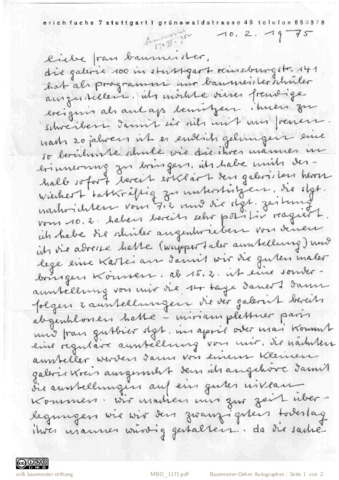 erich fuchs 7 stuttgart 1 grünewaldstrasse 45 telefon 850378
10. 2. 1975
liebe frau baumeister,
die galerie 100 in stuttgart reinsburgstr. 141
hat als programm nur baumeisterschüler
auszustellen. ich möchte dieses freudige
ereignis als anlass benützen ihnen zu
schreiben damit sie sich mit uns freuen.
nach 20 jahren ist es endlich gelungen eine
so berühmte schule wie die ihres mannes in
erinnerung zu bringen. ich habe mich des-
halb sofort bereit erklärt den galeristen herrn
wichert tatkräftig zu unterstützen. die stgt.
nachrichten vom 7.2 und die stgt. zeitung
vom 10.2. haben bereits sehr positiv reagiert.
ich habe die schüler angeschrieben von denen
ich die adresse hatte (wuppertaler ausstellung) und
lege eine kartei an damit wir die guten maler
bringen können. ab 15.2. ist eine sonder-
ausstellung von mir die 14 tage dauert dann
folgen 2 ausstellungen die der galerist bereits
abgeschlossen hatte - miriam plettner paris
und frau gutbier stgt. im april oder mai kommt
eine reguläre ausstellung von mir. die nächsten
aussteller werden dann von einem kleinen
galeriekreis ausgesucht dem ich angehöre damit
die ausstellungen auf ein gutes niveau
kommen. wir machen uns zur zeit über-
legungen wie wir den zwanzigsten todestag
ihres mannes würdig gestalten. da die sache
willi baumeister stiftung MBO_1171.pdf Baumeister-Oehm Autographen : Seite 1 von 2